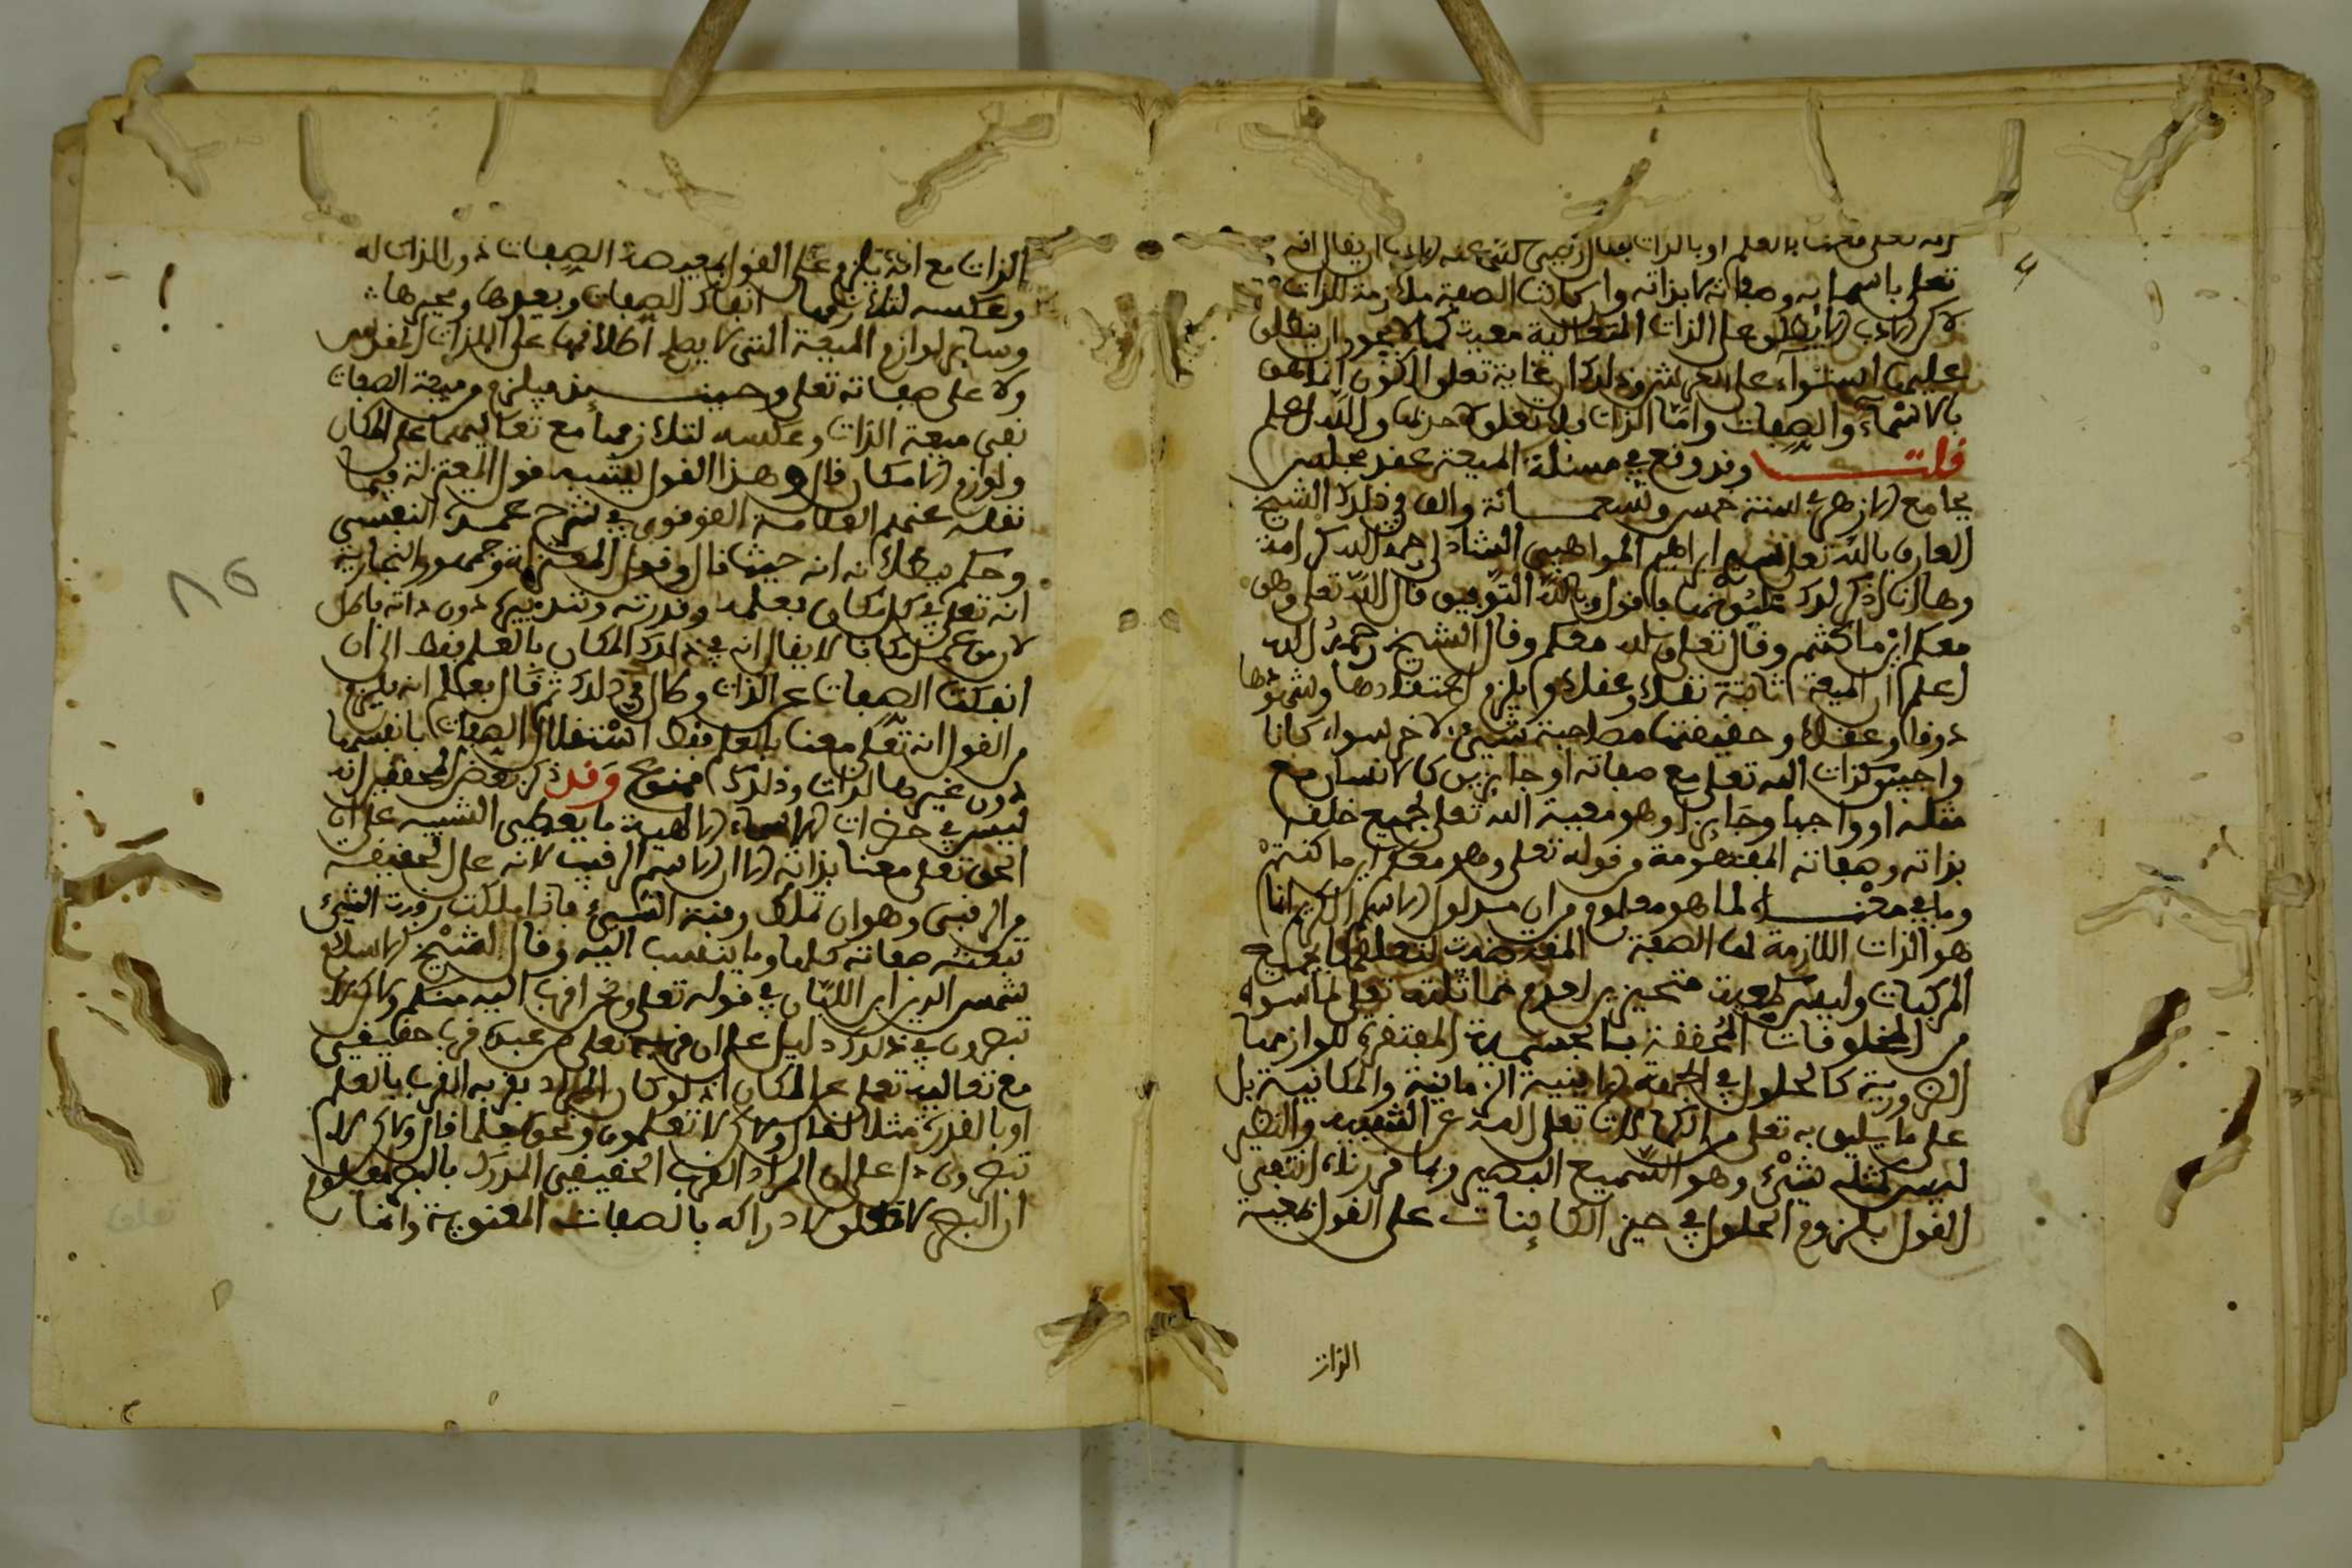 تعلى باسمايه وصفاته لا بذاته وان كانت الصفة ملازمة للذات
لاكن الادب لا يطلق على الذات المتعالية معية كما لا يجوز ان يطلق
عليها استواء على العرش وذلك ان غاية تعلق الكون انما هو
بالاسماء والصفات واما الذات فلا تعلق لاحد بها والله اعلم
قلت وقد وقع في مسئلة المعية عقد مجلس
بجامع الازهر في سنة خمس وتسعمائة والف في ذلك الشيخ
العارف بالله تعلى سيدي ابراهيم المواهبي الشاذلي رحمه الله كراسة
وها انا اذكر لك عيونها فاقول وبالله التوفيق قال الله تعلى وهو
معكم اين ما كنتم وقال تعلى والله معكم وقال الشيخ رحمه الله
اعلم ان المعية ثابتة نقلا وعقلا ويلزم اعتقادها وشهودها
ذوقا وعقلا وحقيقتها مصاحبة شيء لاخر سواء كانا
واجبين كذات الله تعلى مع صفاته او جايزين كالانسان مع
مثله او واجبا وجايزا وهو معية الله تعلى لجميع خلقه
بذاته وصفاته المفهومة من قوله تعلى وهو معكم اين ما كنتم
وما في معناه لما هو معلوم من ان مدلول الاسم الكريم انما
هو الذات اللازمة لها الصفة المقدسة لتعلقها بجميع
المركبات وليس كمعية متحيزين لعدم مماثلته تعلى لما سواه
من المخلوقات المحققة بالجسمية المفتقرة للوازمها
الضرورية كالحلول في الجهة الاينية الزمانية والمكانية بل
على ما يليق به تعلى من الكمالات تعلى الله عن الشبيه والنظير
ليس كمثله شيء وهو السميع البصير وبما قررناه انتفى
القول بلزوم الحلول في حيز الكاينات على القول بمعية
الذات
الذات مع انه يلزم على القول بمعية الصفات دون الذات له
وعكسه لتلازمهما انفكاك الصفات وبعدها وتحيزها
وساير لوازم المعية التي لا يصح اطلاقها على الذات المقدس
ولا على صفاته تعلى وحينئذ فيلزم من معية الصفات
نفى معية الذات وعكسه لتلازمهما مع تعاليهما على المكان
ولوازم الامكان قال وهذا القول يشبه قول المعتزلة فيما
نقله عنهم العلامة القونوي في شرح عمدة النفسي
وحكم ببطلانه انه حيث قال وقول المعتزلة وجمهور النجارية
انه تعلى في كل مكان بعلمه وقدرته وتدبيره دون ذاته باطل
لان من علم مكانا لا يقال انه في ذلك المكان بالعلم فقط الا ان
انفكت الصفات عن الذات وكان في ذلك ثم قال بعلم انه يلزم
من القول انه تعلى معنا بالعلم فقط استقلال الصفات بانفسها
دون غيرها الذات وذلك ممنوع وقد ذكر بعض المحققين انه
ليس في حضرات الاسماء الالهية ما يعطي التنبيه على ان
الحق تعلى معنا بذاته الا الاسم الرقيب لانه على الحقيقة
من الرقبى وهو ان تملك رقبة الشيء فاذا ملكت رقبة الشيء
تبعته صفاته كلها وما ينتسب اليه وقال الشيخ الاسلام
شمس الدين ابن اللبان في قوله تعلى ونحن اقرب اليه منكم ولاكن لا
تبصرون في ذلك دليل على ان قربه تعلى من عبده قربا حقيقيا
مع تعاليه تعلى عن المكان اذ لو كان المراد بقربه القرب بالعلم
او بالقدرة مثلا لقال ولاكن لا تعلمون ونحوه فلما قال ولاكن لا
تبصرون دل على ان المراد القرب الحقيقي المدرك بالبصر معلوم
ان البصر لا تعلق لادراكه بالصفات المعنوية وانما